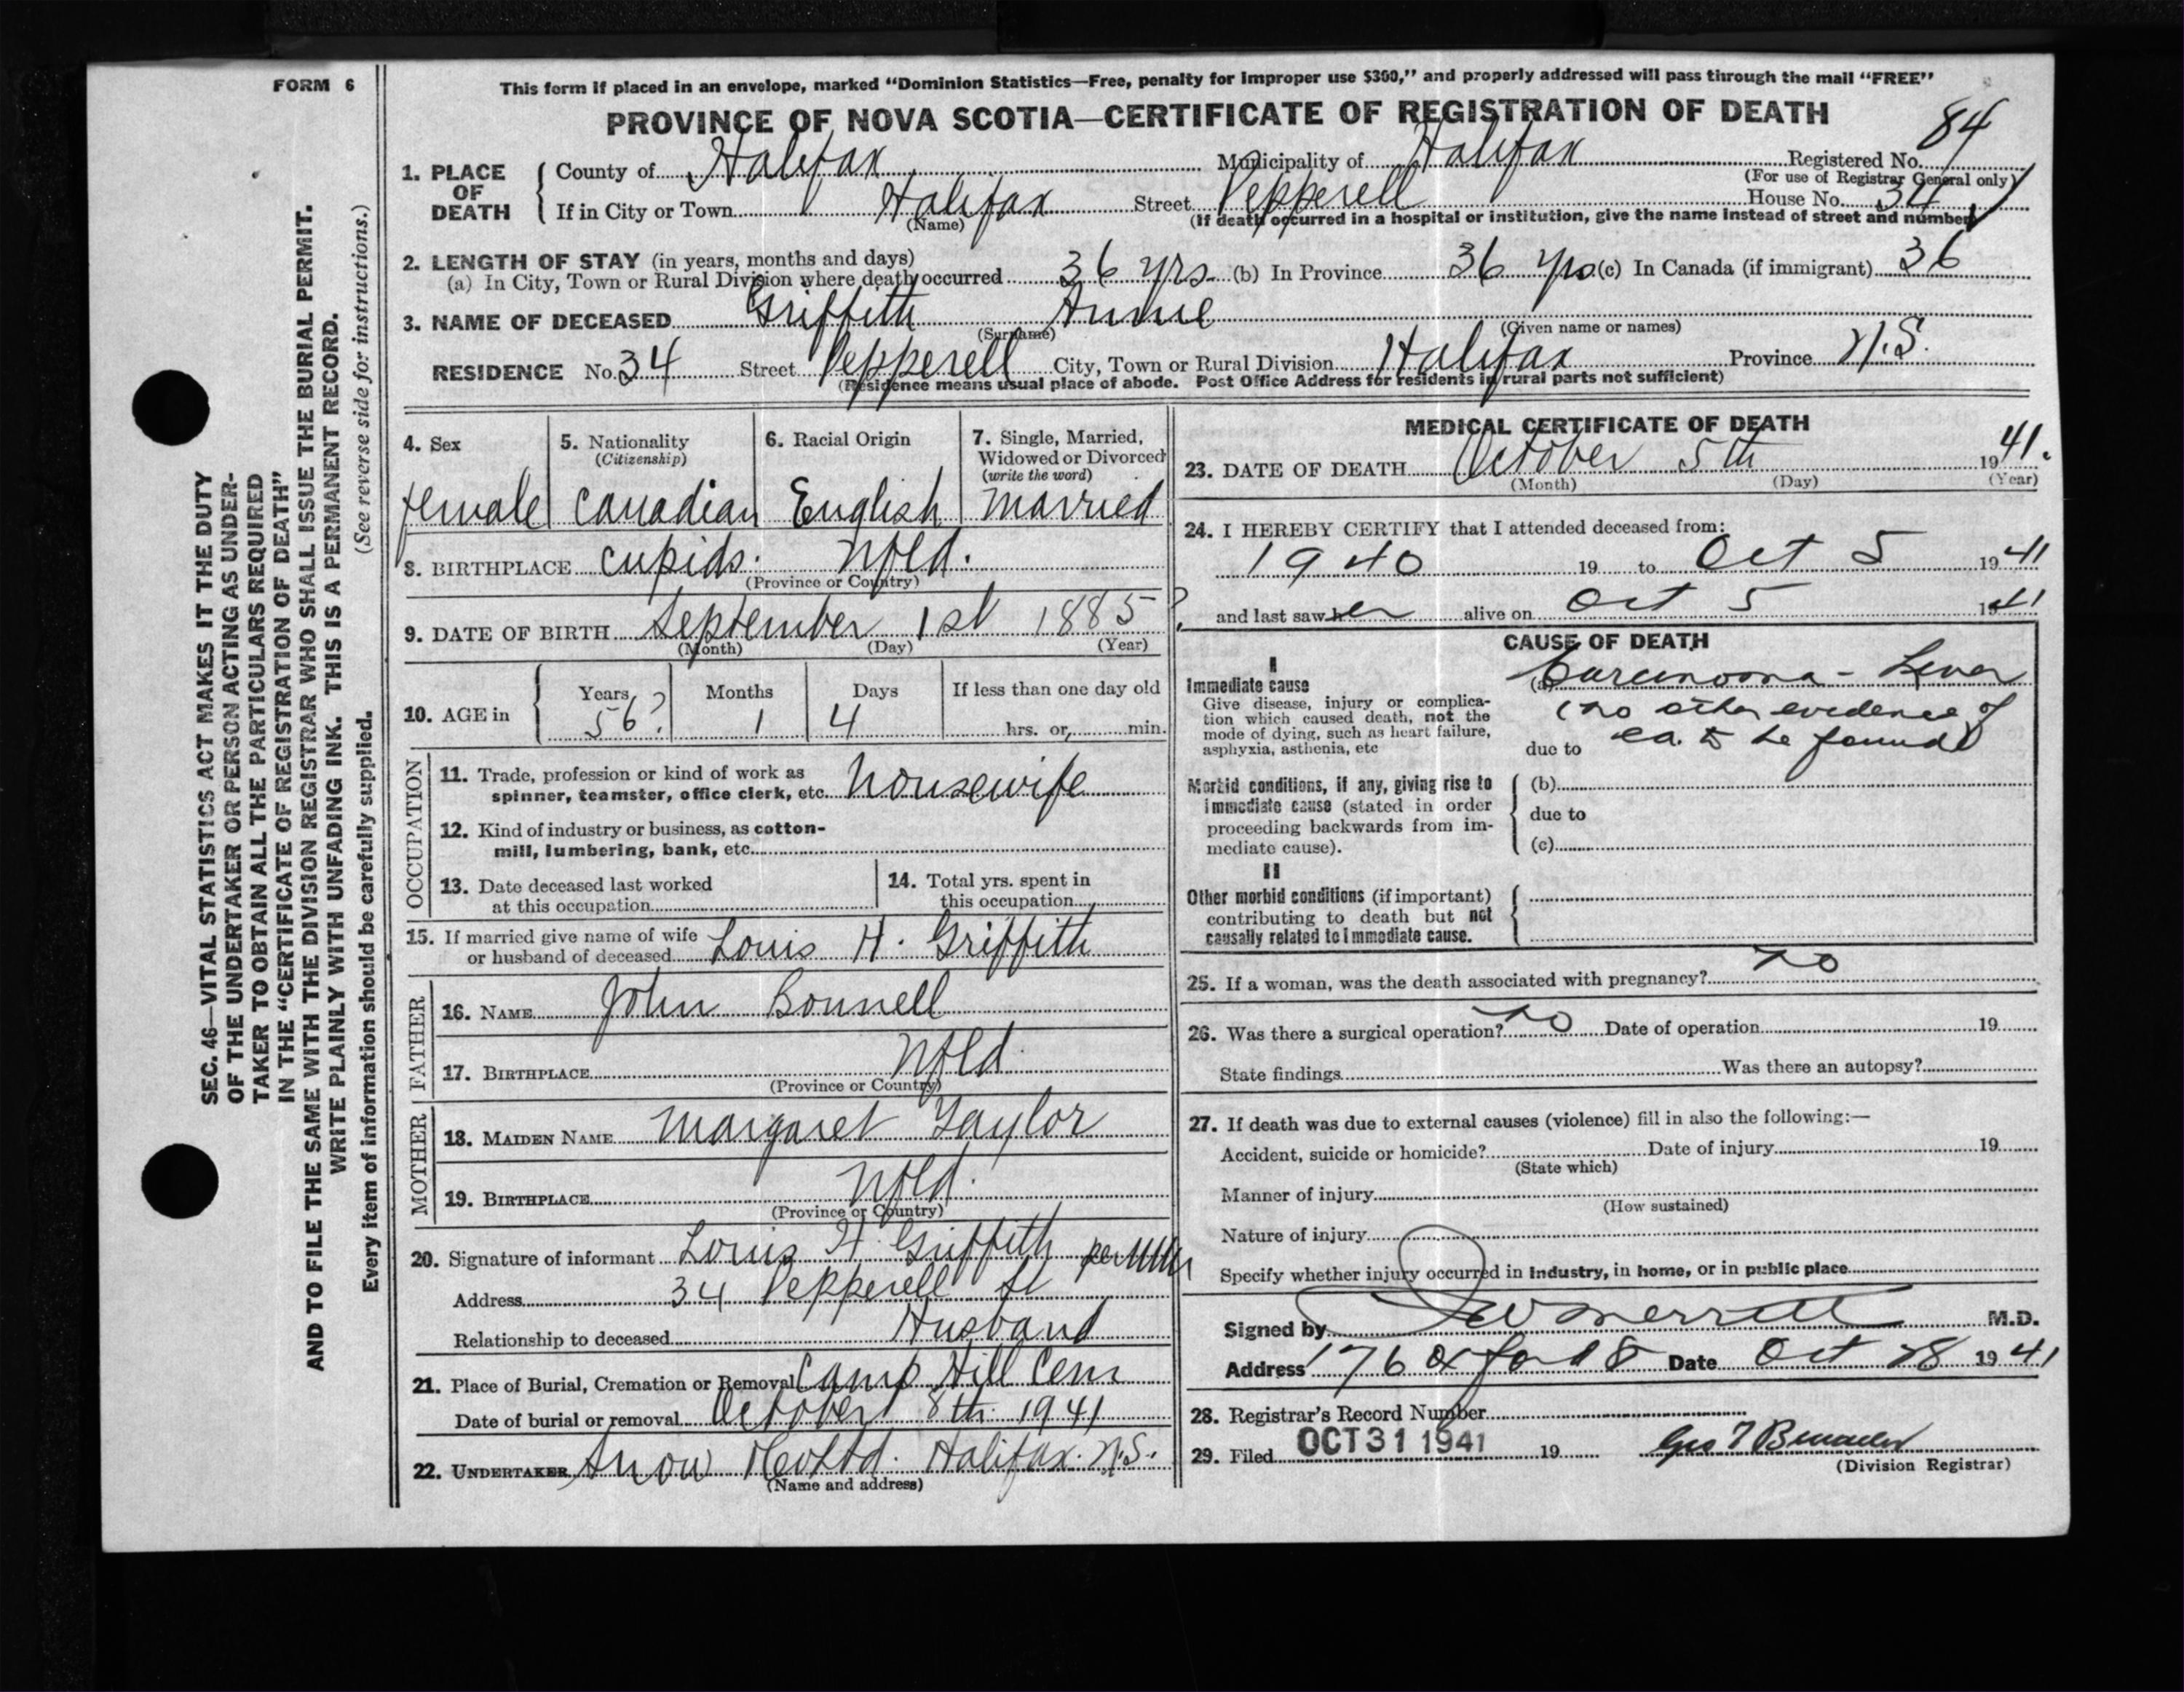 FORM 6
SEC. 46—VITAL STATISTICS ACT MAKES IT THE DUTY
OF THE UNDERTAKER OR PERSON ACTING AS UNDER-
TAKER TO OBTAIN ALL THE PARTICULARS REQUIRED
IN THE "CERTIFICATE OF REGISTRATION OF DEATH"
AND TO FILE THE SAME WITH THE DIVISION REGISTRAR WHO SHALL ISSUE THE BURIAL PERMIT.
WRITE PLAINLY WITH UNFADING INK. THIS IS A PERMANENT RECORD.
(See reverse side for instructions.)
Every item of information should be carefully supplied.
This form if placed in an envelope, marked "Dominion Statistics—Free, penalty for improper use $300," and properly addressed will pass through the mail "FREE"
PROVINCE OF NOVA SCOTIA—CERTIFICATE OF REGISTRATION OF DEATH
84
1. PLACE OF DEATH County of Halifax Municipality of Halifax Registered No.
(For use of Registrar General only)
If in City or Town Halifax Street Pepperell House No. 34
(Name) (If death occurred in a hospital or institution, give the name instead of street and number)
2. LENGTH OF STAY (in years, months and days)
(a) In City, Town or Rural Division where death occurred 36 yrs (b) In Province 36 yrs (c) In Canada (if immigrant) 36
3. NAME OF DECEASED Griffith Annie
(Surname) (Given name or names)
RESIDENCE No. 34 Street Pepperell City, Town or Rural Division Halifax Province N.S.
(Residence means usual place of abode. Post Office Address for residents in rural parts not sufficient)
4. Sex 5. Nationality (Citizenship) 6. Racial Origin 7. Single, Married, Widowed or Divorced (write the word)
female canadian English married
8. BIRTHPLACE cupids. Nfld.
(Province or Country)
9. DATE OF BIRTH September 1st 1885 ?
(Month) (Day) (Year)
10. AGE in Years Months Days If less than one day old
56? 1 4 hrs. or, min.
OCCUPATION
11. Trade, profession or kind of work as
spinner, teamster, office clerk, etc. housewife
12. Kind of industry or business, as cotton-
mill, lumbering, bank, etc.
13. Date deceased last worked
at this occupation
14. Total yrs. spent in
this occupation
15. If married give name of wife
or husband of deceased Louis H. Griffith
FATHER
16. NAME John Bonnell
17. BIRTHPLACE Nfld.
(Province or Country)
MOTHER
18. MAIDEN NAME Margaret Taylor
19. BIRTHPLACE Nfld.
(Province or Country)
20. Signature of informant Louis H. Griffith per
Address 34 Pepperell St
Relationship to deceased Husband
21. Place of Burial, Cremation or Removal Camp Hill Cem
Date of burial or removal October 8th 1941
22. UNDERTAKER Snow & Co Ltd. Halifax. N.S.
(Name and address)
MEDICAL CERTIFICATE OF DEATH
23. DATE OF DEATH October 5th 1941.
(Month) (Day) (Year)
24. I HEREBY CERTIFY that I attended deceased from:
1940 19 to Oct 5 1941
and last saw her alive on Oct 5 1941
CAUSE OF DEATH
I
Immediate cause (a) Carcinoma - Liver
Give disease, injury or complica-
tion which caused death, not the
mode of dying, such as heart failure,
asphyxia, asthenia, etc
(no other evidence of
due to ca. to be found)
Morbid conditions, if any, giving rise to
immediate cause (stated in order
proceeding backwards from im-
mediate cause).
(b)
due to
(c)
II
Other morbid conditions (if important)
contributing to death but not
causally related to immediate cause.
25. If a woman, was the death associated with pregnancy? no
26. Was there a surgical operation? no Date of operation 19
State findings Was there an autopsy?
27. If death was due to external causes (violence) fill in also the following:—
Accident, suicide or homicide? Date of injury 19
(State which)
Manner of injury
(How sustained)
Nature of injury
Specify whether injury occurred in industry, in home, or in public place
Signed by Merritt M.D.
Address 176 Oxford S Date Oct 28 1941
28. Registrar's Record Number
29. Filed OCT 31 1941 19
(Division Registrar)